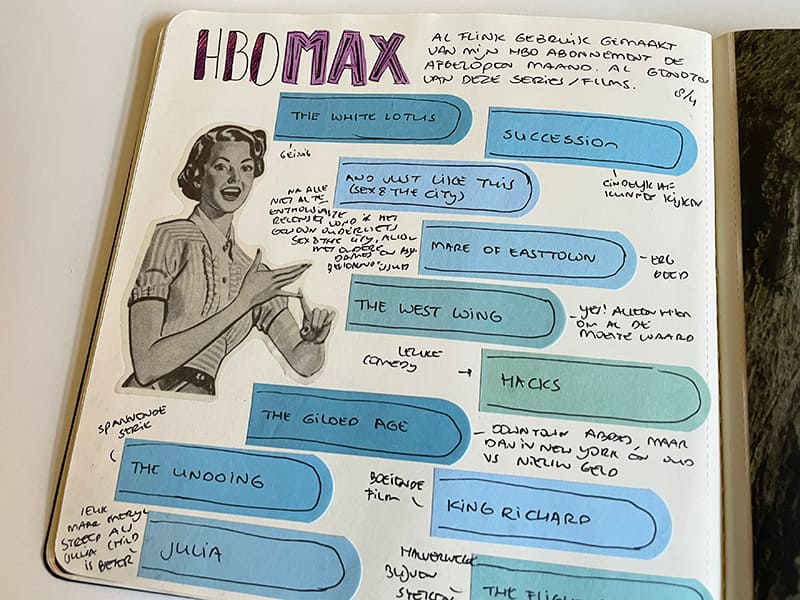 HBO MAX
AL FLINK GEBRUIK GEMAAKT
VAN MIJN HBO ABONNEMENT DE
AFGELOPEN MAAND. AL GENOTEN
VAN DEZE SERIES/FILMS.
8/4
THE WHITE LOTUS
GEINIG
SUCCESSION
EINDELIJK HE-
KUNNEN KIJKEN
AND JUST LIKE THIS
(SEX & THE CITY)
NA ALLE
NIET AL TE
ENTHOUSIASTE
RECENSIES VOND IK HET
GEWOON OUDERWETS
SEX & THE CITY, ALLEEN
MET OUDERE
DAMES
MARE OF EASTTOWN
- ERG
GOED
THE WEST WING
- YES! ALLEEN HIER
OM AL DE
MOEITE WAARD
LEUKE
COMEDY →
HACKS
THE GILDED AGE
- DOWNTOWN ABBEY, MAAR
DAN IN NEW YORK EN OUD
VS NIEUW GELD
SPANNENDE
SERIE
THE UNDOING
BOEIENDE
FILM
KING RICHARD
LEUK
MAAR MERYL
STREEP ALS
JULIA CHILD
IS BETER
JULIA
BLIJVEN
THE FLIGHT